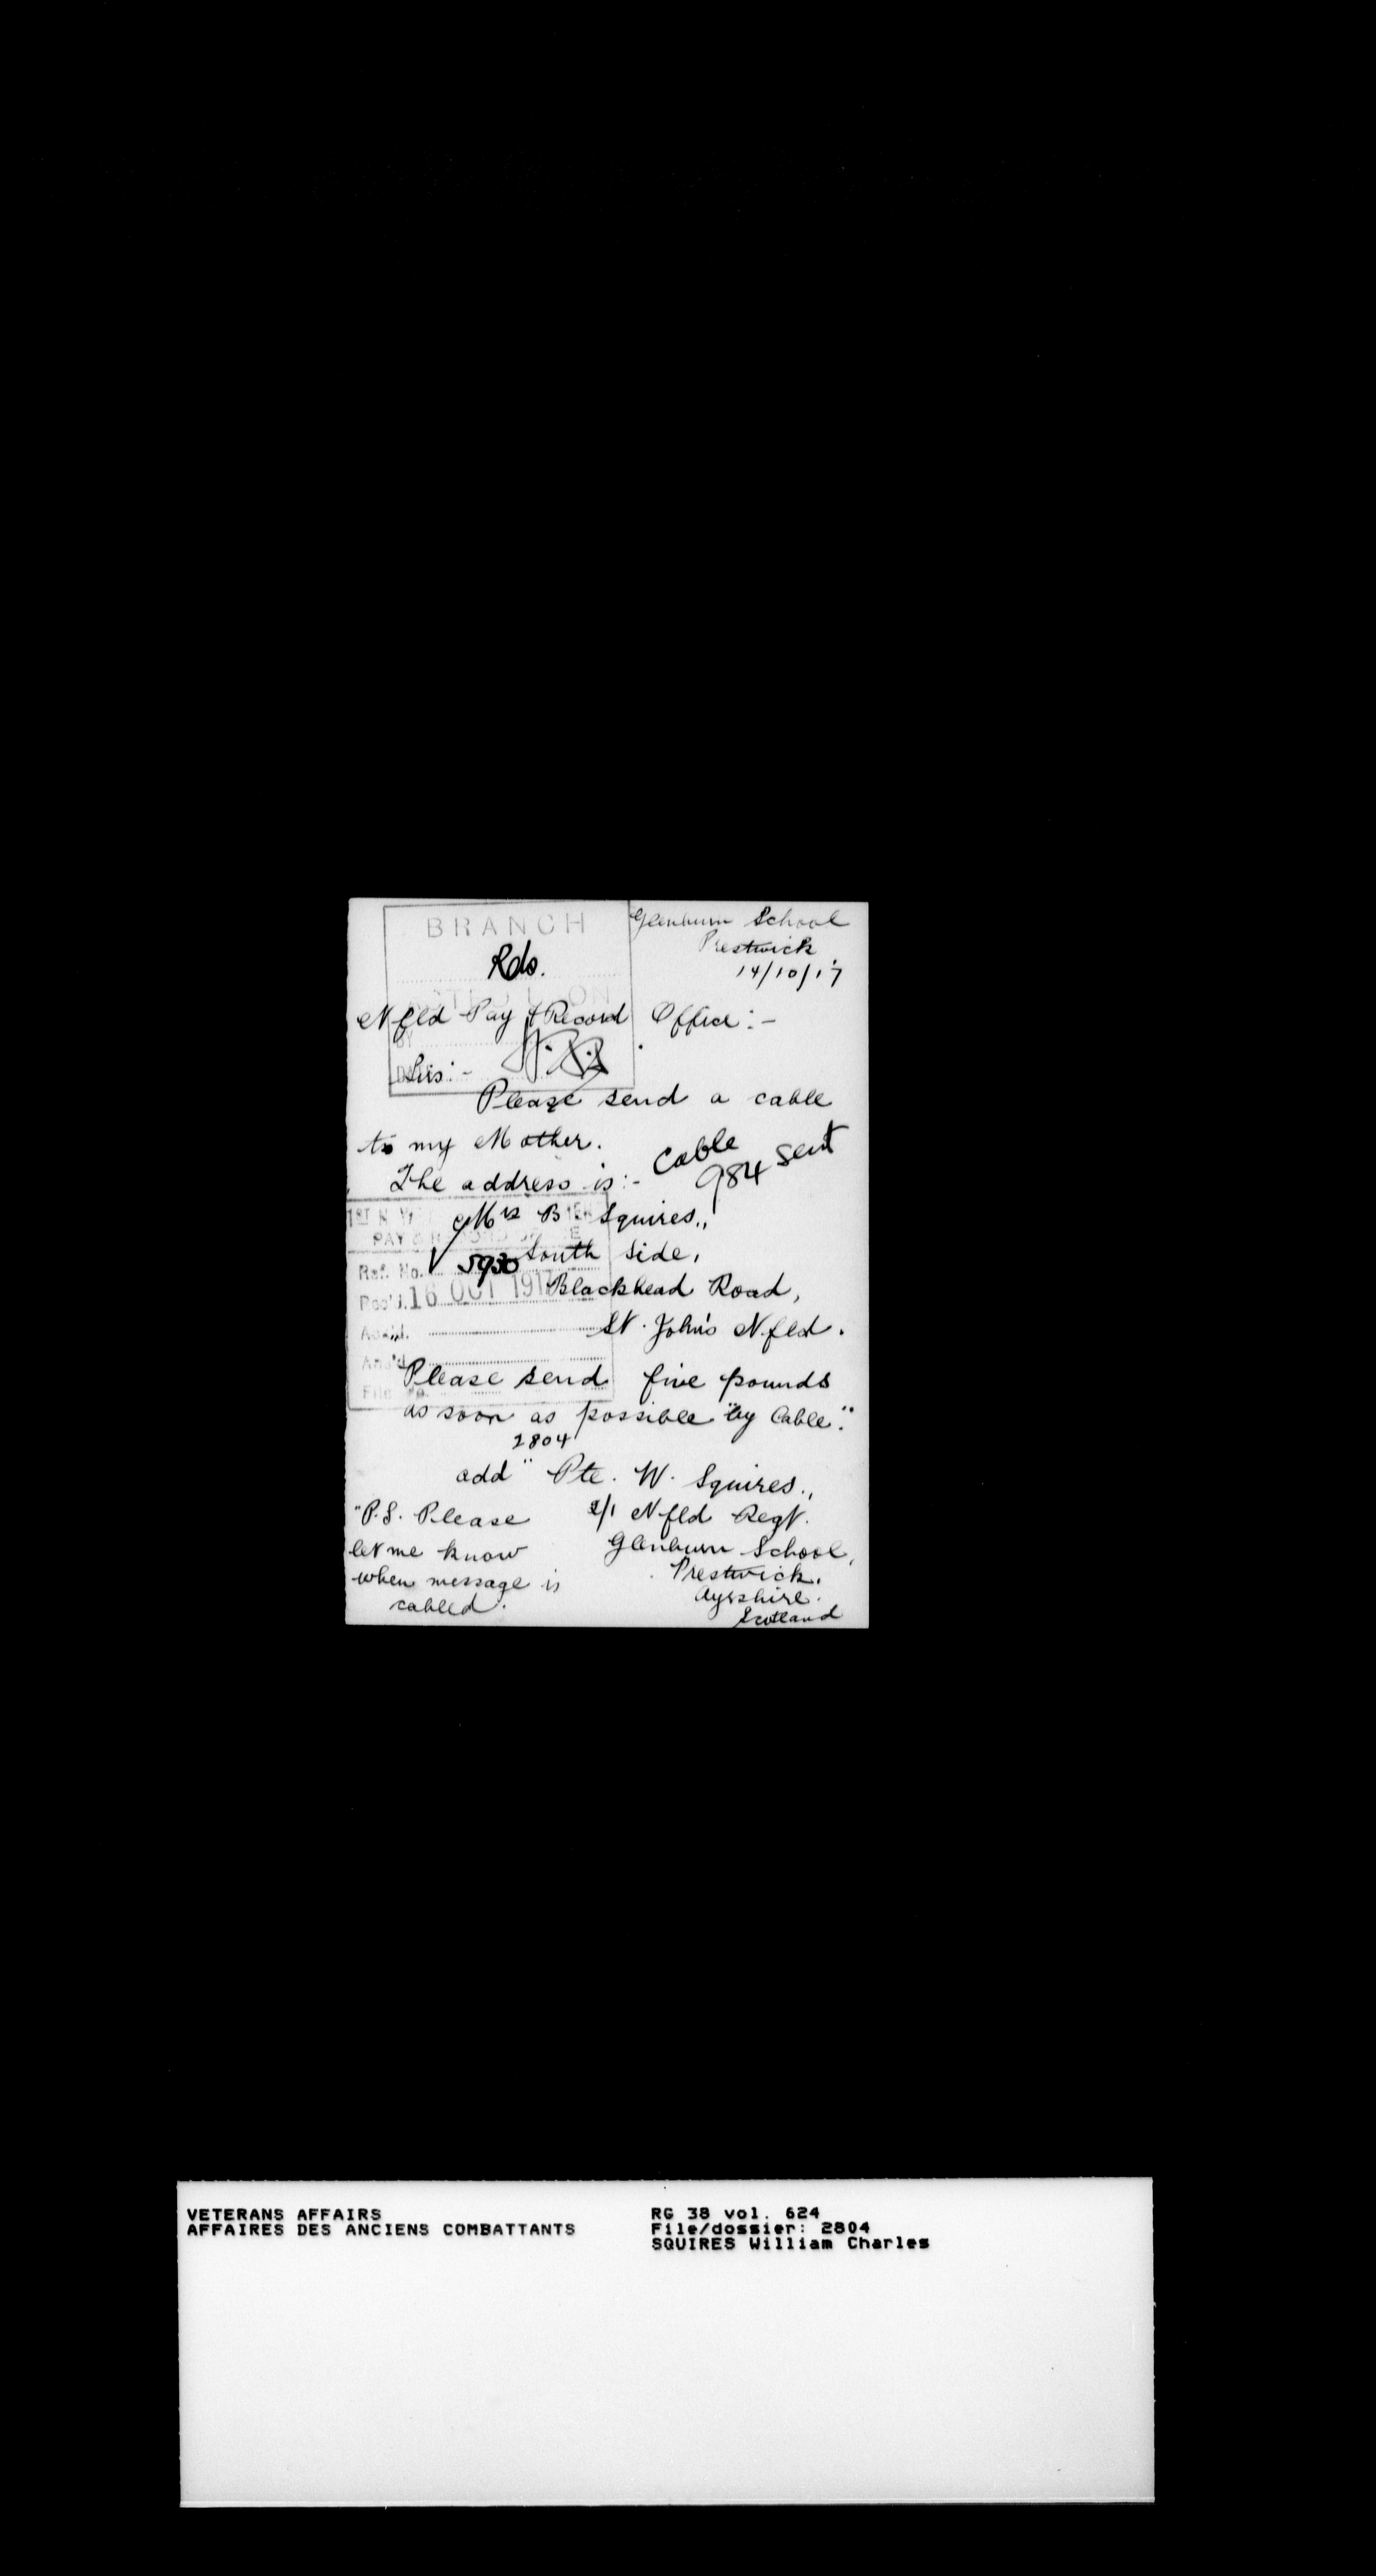 BRANCH
Rds.
Glenburn School
Prestwick
14/10/17
Nfld Pay & Record Office:-
BY
DATE
Sirs:-
Please send a cable
to my Mother.
cable sent
984
The address is:-
Mrs B Squires.,
PAY & RECORD OFFICE
South Side,
Ref. No. 5930
Blackhead Road,
Rec'd. 16 OCT 1917
St. John's Nfld.
Ack'd.
Ans'd.
Please send five pounds
File No.
as soon as possible "by Cable".
2804
add" Pte. W. Squires.,
2/1 Nfld Regt.
Glenburn School,
Prestwick.
Ayrshire.
Scotland
"P.S. Please
let me know
when message is
cabled.
VETERANS AFFAIRS
AFFAIRES DES ANCIENS COMBATTANTS
RG 38 vol. 624
File/dossier: 2804
SQUIRES William Charles